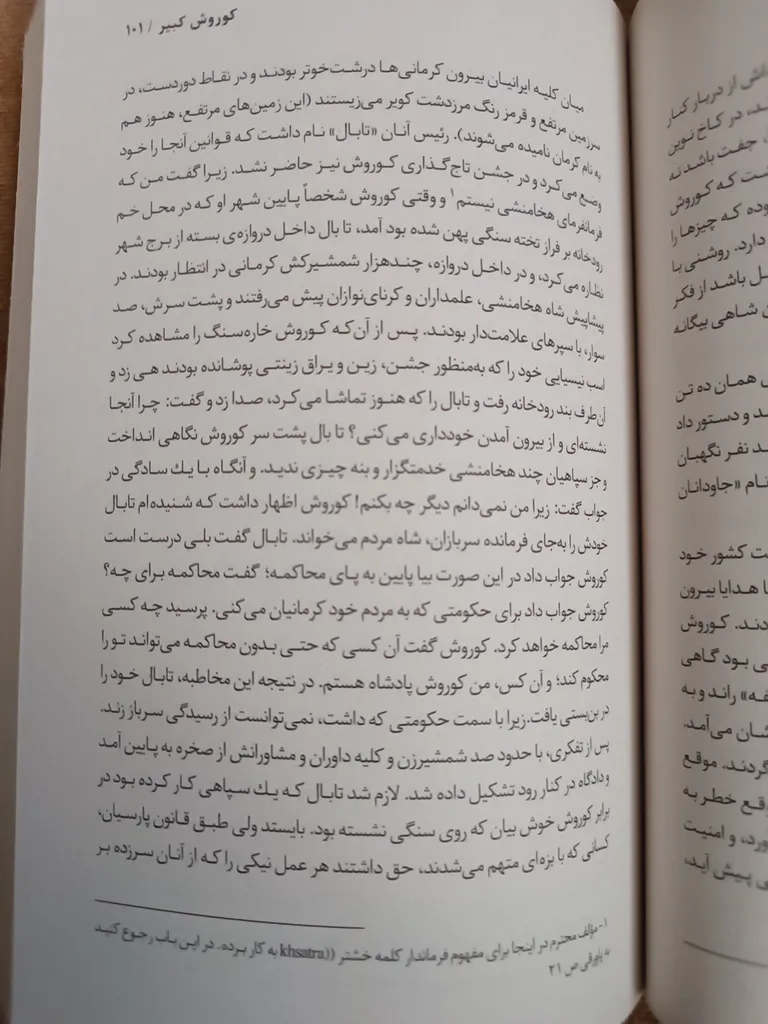 کوروش کبیر / ۱۰۱
میان کلیه ایرانیان بیرون کرمانی‌ها درشت‌خوتر بودند و در نقاط دوردست، در
سرزمین مرتفع و قرمز رنگ مرزدشت کویر می‌زیستند (این زمین‌های مرتفع، هنوز هم
به نام کرمان نامیده می‌شوند). رئیس آنان «تابال» نام داشت که قوانین آنجا را خود
وضع می‌کرد و در جشن تاج‌گذاری کوروش نیز حاضر نشد. زیرا گفت من که
فرمانفرمای هخامنشی نیستم۱ و وقتی کوروش شخصاً پایین شهر او که در محل خم
رودخانه بر فراز تخته سنگی پهن شده بود آمد، تا بال داخل دروازه‌ی بسته از برج شهر
نظاره می‌کرد، و در داخل دروازه، چندهزار شمشیرکش کرمانی در انتظار بودند. در
پیشاپیش شاه هخامنشی، علمداران و کرنای‌نوازان پیش می‌رفتند و پشت سرش، صد
سوار، با سپرهای علامت‌دار بودند. پس از آن‌که کوروش خاره‌سنگ را مشاهده کرد
اسب نیسیایی خود را که به‌منظور جشن، زین و یراق زینتی پوشانده بودند هی زد و
آن‌طرف بند رودخانه رفت و تابال را که هنوز تماشا می‌کرد، صدا زد و گفت: چرا آنجا
نشسته‌ای و از بیرون آمدن خودداری می‌کنی؟ تا بال پشت سر کوروش نگاهی انداخت
و جز سپاهیان چند هخامنشی خدمتگزار و بنه چیزی ندید. و آنگاه با یك سادگی در
جواب گفت: زیرا من نمی‌دانم دیگر چه بکنم! کوروش اظهار داشت که شنیده‌ام تابال
خودش را به‌جای فرمانده سربازان، شاه مردم می‌خواند. تابال گفت بلی درست است
کوروش جواب داد در این صورت بیا پایین به پای محاکمه؛ گفت محاکمه برای چه؟
کوروش جواب داد برای حکومتی که به مردم خود کرمانیان می‌کنی. پرسید چه کسی
مرا محاکمه خواهد کرد. کوروش گفت آن کسی که حتی بدون محاکمه می‌تواند تو را
محکوم کند؛ و آن کس، من کوروش پادشاه هستم. در نتیجه این مخاطبه، تابال خود را
در بن‌بستی یافت. زیرا با سمت حکومتی که داشت، نمی‌توانست از رسیدگی سرباز زند.
پس از تفکری، با حدود صد شمشیرزن و کلیه داوران و مشاورانش از صخره به پایین آمد
و دادگاه در کنار رود تشکیل داده شد. لازم شد تابال که یك سپاهی کار کرده بود در
برابر کوروش خوش بیان که روی سنگی نشسته بود. بایستد ولی طبق قانون پارسیان،
کسانی که با بزه‌ای متهم می‌شدند، حق داشتند هر عمل نیکی را که از آنان سرزده بر
۱- مؤلف محترم در اینجا برای مفهوم فرماندار کلمه خشتر ((khsatra به کار برده. در این باب رجوع کنید
به پاورقی ص ۲۱
از دربار کنار
در کاخ نوین
جفت باشد نه
که کوروش
که چیزها را
دارد. روشنی با
باشد از فکر
شاهی بیگانه
همان ده تن
و دستور داد
نفر نگهبان
نام «جاودانان
کشور خود
هدایا بیرون
کوروش
بود گاهی
راند و به
می‌آمد.
موقع
خطر به
و امنیت
پیش آید،